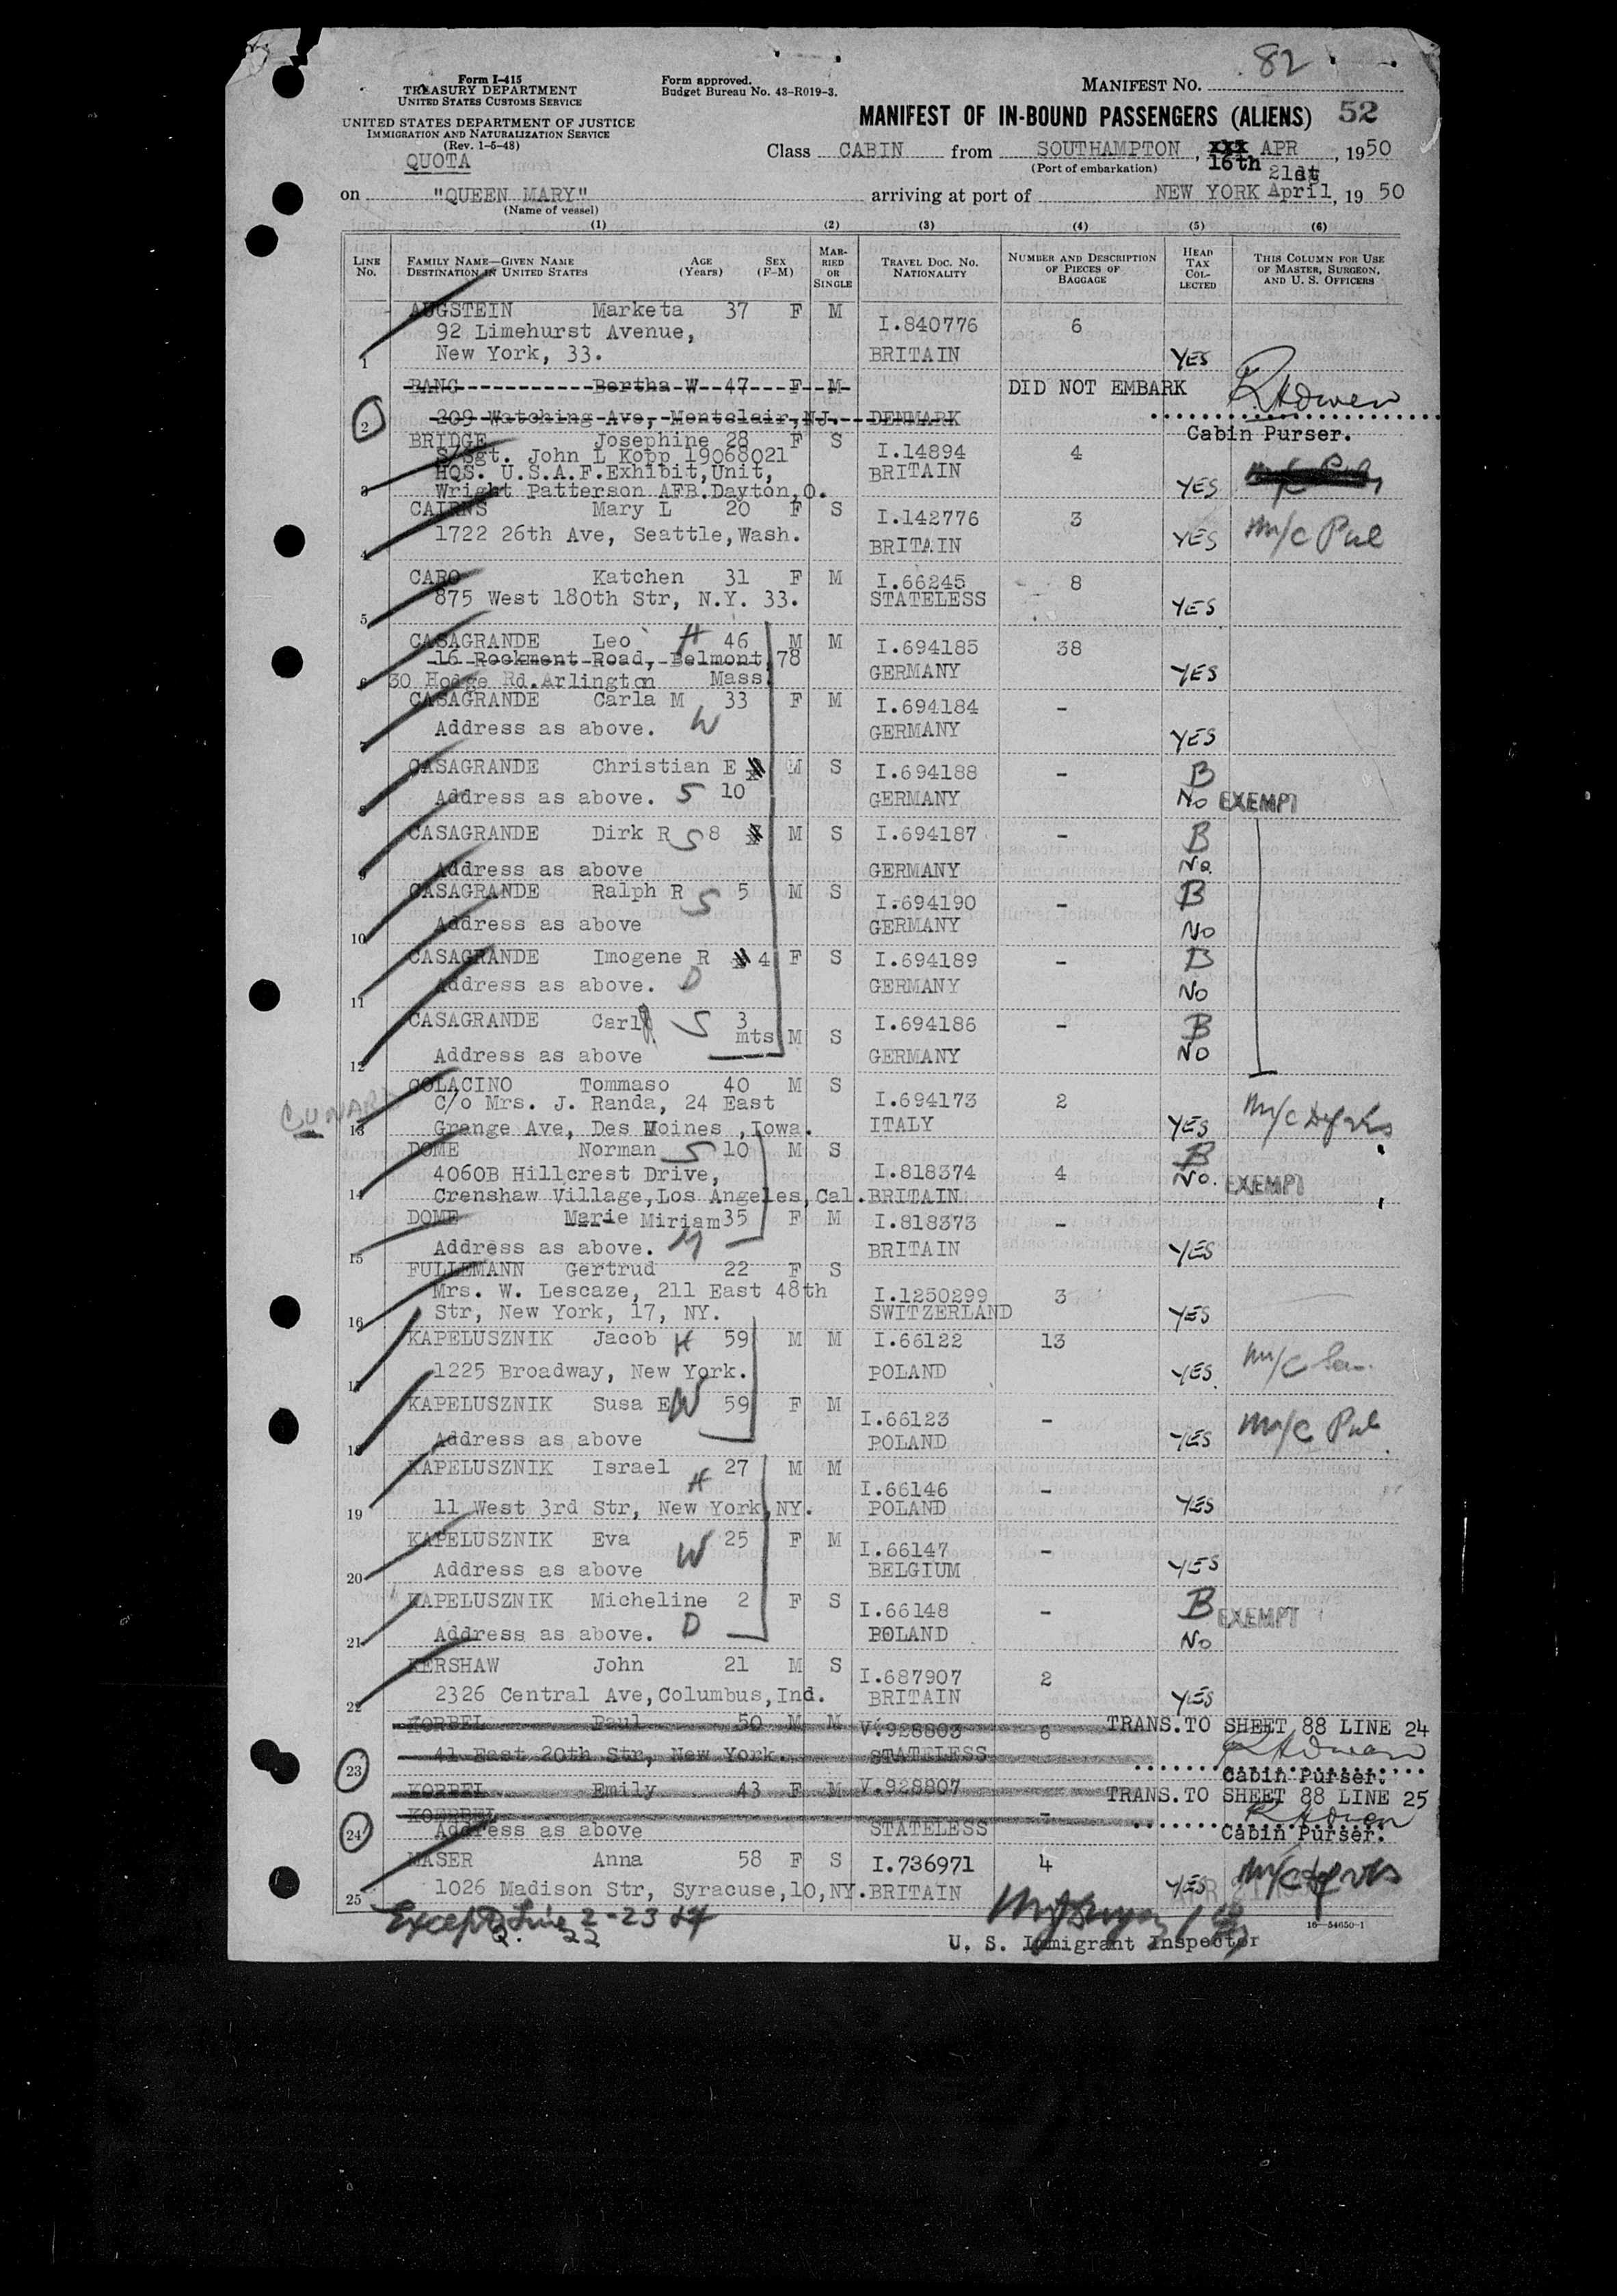 82
Form I-415
TREASURY DEPARTMENT
UNITED STATES CUSTOMS SERVICE
Form approved.
Budget Bureau No. 43-R019-3.
MANIFEST NO.
UNITED STATES DEPARTMENT OF JUSTICE
IMMIGRATION AND NATURALIZATION SERVICE
(Rev. 1-5-48)
MANIFEST OF IN-BOUND PASSENGERS (ALIENS) 52
QUOTA
Class CABIN from SOUTHAMPTON, xxx APR, 1950
(Port of embarkation) 16th
21st
on "QUEEN MARY" arriving at port of NEW YORK April, 19 50
(Name of vessel)
(1) (2) (3) (4) (5) (6)
LINE No.
FAMILY NAME—GIVEN NAME AGE (Years) SEX (F-M)
DESTINATION IN UNITED STATES
MARRIED OR SINGLE
TRAVEL DOC. NO. NATIONALITY
NUMBER AND DESCRIPTION OF PIECES OF BAGGAGE
HEAD TAX COLLECTED
THIS COLUMN FOR USE OF MASTER, SURGEON, AND U. S. OFFICERS
AUGSTEIN Marketa 37 F M I.840776 6
92 Limehurst Avenue,
1 New York, 33. BRITAIN YES
BANG Bertha W 47 F M DID NOT EMBARK
2 209 Watching Ave, Montclair, NJ. DENMARK
Cabin Purser.
BRIDGE Josephine 28 F S I.14894 4
S/Sgt. John L Kopp 19068021
HQS. U.S.A.F.Exhibit,Unit, BRITAIN
3 Wright Patterson AFB.Dayton,O. YES
CAIRNS Mary L 20 F S I.142776 3
4 1722 26th Ave, Seattle,Wash. BRITAIN YES M/C Pul
CARO Katchen 31 F M I.66245 8
5 875 West 180th Str, N.Y. 33. STATELESS YES
CASAGRANDE Leo H 46 M M I.694185 38
16 Rockmont Road, Belmont, 78
6 30 Hodge Rd.Arlington Mass. GERMANY YES
CASAGRANDE Carla M 33 F M I.694184 -
7 Address as above. W GERMANY YES
CASAGRANDE Christian E M S I.694188 - B
8 Address as above. S 10 GERMANY No EXEMPT
CASAGRANDE Dirk R S 8 M S I.694187 - B
9 Address as above GERMANY No.
CASAGRANDE Ralph R S 5 M S I.694190 - B
10 Address as above GERMANY No
CASAGRANDE Imogene R 4 F S I.694189 - B
11 Address as above. D GERMANY No
CASAGRANDE Carl S 3 mts M S I.694186 - B
12 Address as above GERMANY NO
COLACINO Tommaso 40 M S I.694173 2
CUNARD
C/o Mrs. J. Randa, 24 East
13 Grange Ave, Des Moines ,Iowa. ITALY YES M/C
DOME Norman S 10 M S I.818374 4 B
4060B Hillcrest Drive,
14 Crenshaw Village,Los Angeles,Cal. BRITAIN No. EXEMPT
DOME Marie Miriam 35 F M I.818373 -
15 Address as above. M BRITAIN YES
FULLEMANN Gertrud 22 F S I.1250299 3
Mrs. W. Lescaze, 211 East 48th
16 Str, New York, 17, NY. SWITZERLAND YES
KAPELUSZNIK Jacob H 59 M M I.66122 13
17 1225 Broadway, New York. POLAND YES M/C
KAPELUSZNIK Susa E W 59 F M I.66123 -
18 Address as above POLAND YES M/C Pul
KAPELUSZNIK Israel H 27 M M I.66146 -
19 11 West 3rd Str, New York,NY. POLAND YES
KAPELUSZNIK Eva W 25 F M I.66147 -
20 Address as above BELGIUM YES
KAPELUSZNIK Micheline 2 F S I.66148 - B EXEMPT
21 Address as above. D POLAND No
KERSHAW John 21 M S I.687907 2
22 2326 Central Ave,Columbus,Ind. BRITAIN YES
KORBEL Paul 50 M M V.928803 6 TRANS.TO SHEET 88 LINE 24
23 41 East 20th Str, New York. STATELESS
Cabin Purser.
KORBEL Emily 43 F M V.928807 - TRANS.TO SHEET 88 LINE 25
KOERBEL
24 Address as above STATELESS Cabin Purser.
MASER Anna 58 F S I.736971 4
25 1026 Madison Str, Syracuse,10,NY. BRITAIN YES M/C
Except Line 2-23 24
22
16—54650-1
U. S. Immigrant Inspector